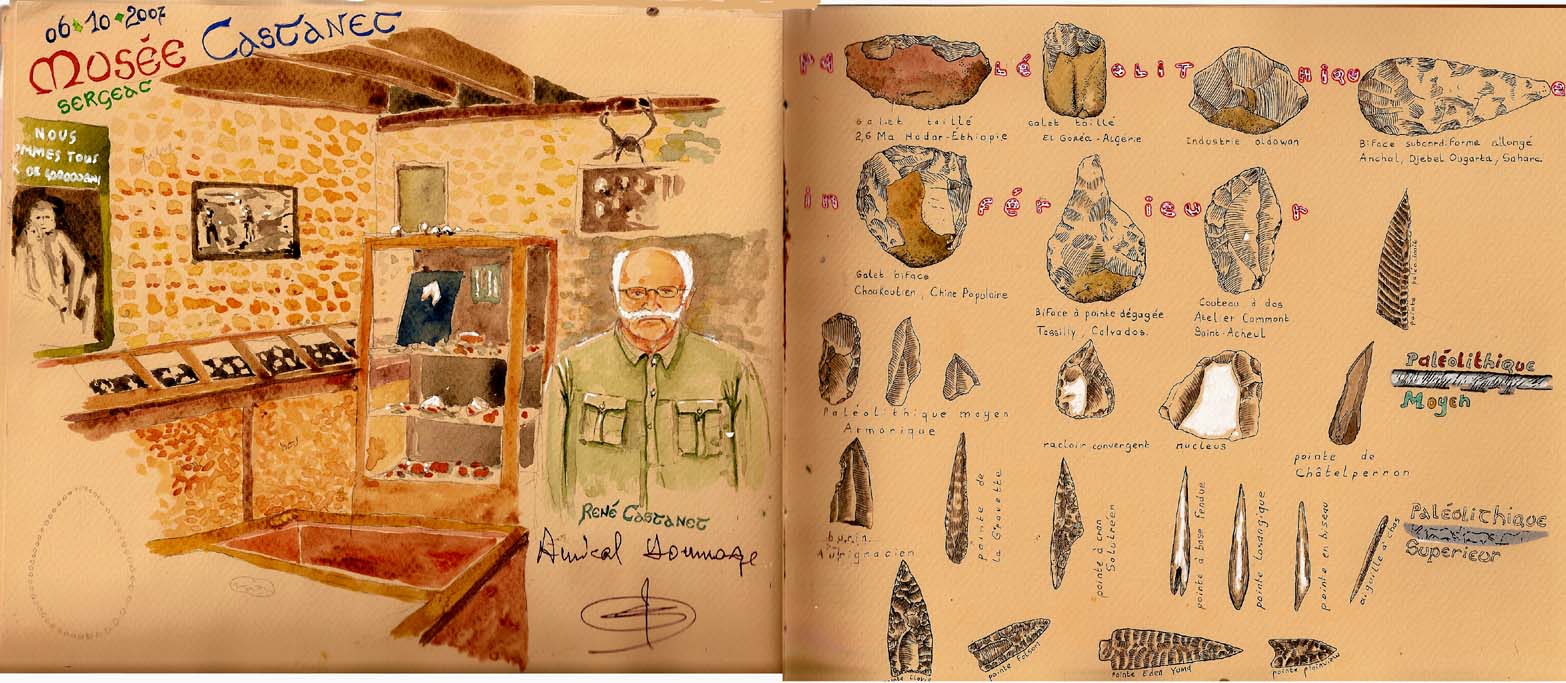 06•10•2007
Musée Castanet
Sergeac
NOUS
MMES TOUS
DE 400000 ANS
René Castanet
Amical Hommage
PALÉOLITHIQUE
INFÉRIEUR
Galet taillé
2,6 Ma Hadar-Ethiopie
Galet taillé
El Goléa - Algérie
Industrie oldowan
Biface subcordiforme allongé
Anchal, Djebel Ougarta, Sahara
Galet biface
Choukoutien, Chine Populaire
Biface à pointe dégagée
Tessilly, Calvados.
Couteau à dos
Atelier Commont
Saint-Acheul
Paléolithique
Moyen
Paléolithique moyen
Armorique
racloir convergent
nucleus
pointe de
Châtelperron
burin
Aurignacien
pointe de
la Gravette
pointe à cran
Solutréen
pointe à base fendue
pointe losangique
pointe en biseau
aiguille à chas
Paléolithique
Superieur
pointe Folsom
pointe Eden Yuma
pointe plainview